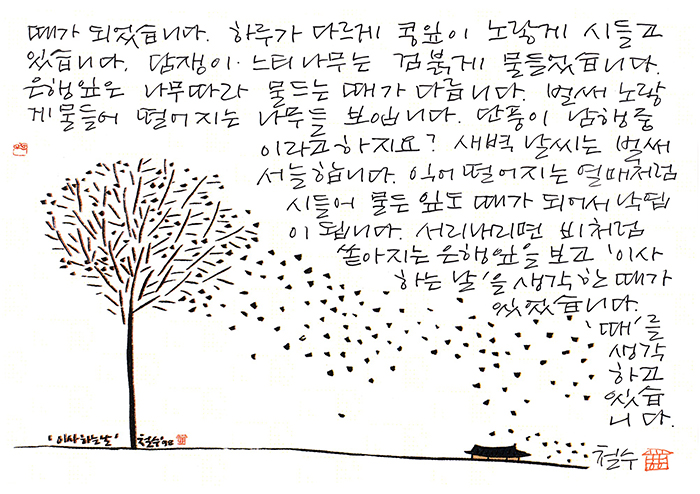 때가 되었습니다. 하루가 다르게 콩잎이 노랗게 시들고
있습니다. 담쟁이·느티나무는 검붉게 물들었습니다.
은행잎은 나무따라 물드는 때가 다릅니다. 벌써 노랗
게 물들어 떨어지는 나무들 보입니다. 단풍이 남행중
이라고 하지요? 새벽 날씨는 벌써
서늘합니다. 익어 떨어지는 열매처럼
시들어 물든 잎도 때가 되어서 낙엽
이 됩니다. 서리내리면 비처럼
쏟아지는 은행잎을 보고 '이사
하는 날'을 생각한 때가
있었습니다.
'때'를
생각
하고
있습
니다.
'이사하는날' 철수 '98
철수